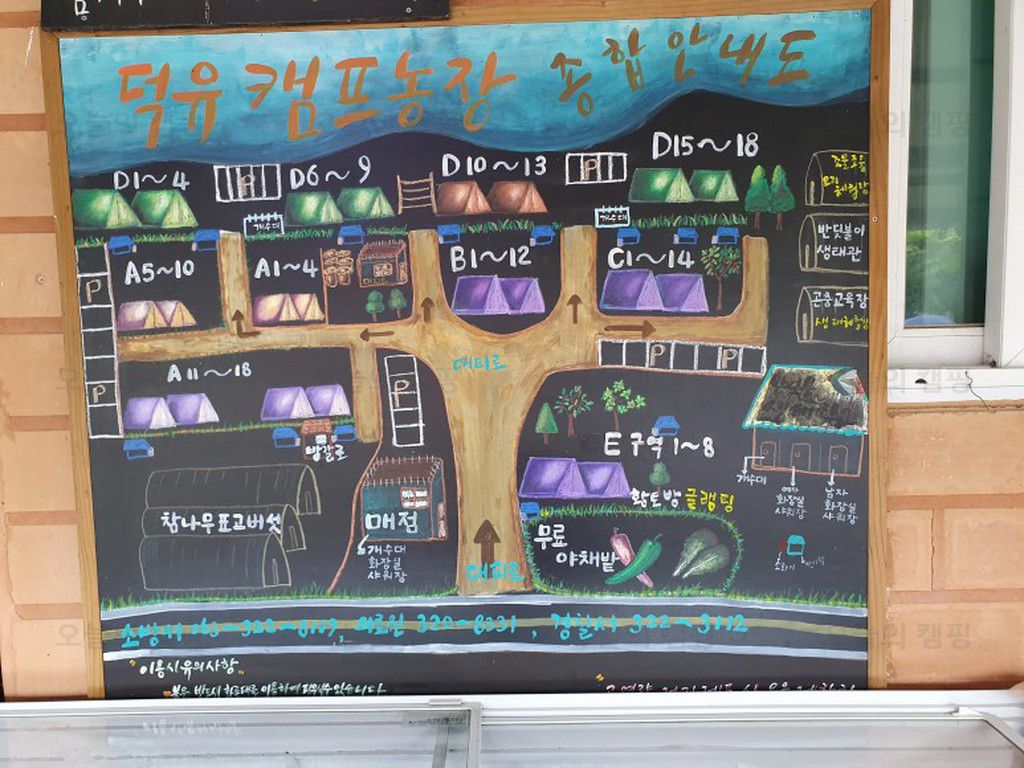 덕유캠프농장 종합안내도
D1~4
P
D6~9
D10~13
P
D15~18
개수대
개수대
반딧불이
생태관
곤충교육장
생태체험장
A5~10
A1~4
B1~12
C1~14
P
P
A11~18
P
대피로
P
P
방갈로
E구역 1~8
황토방 글램핑
개수대
여자
화장실
샤워장
남자
화장실
샤워장
참나무표고버섯
매점
개수대
화장실
샤워장
무료
야채밭
대피로
소방서 , 의료원 320-8331, 경찰서 322-3112
이용시유의사항
오늘의 캠핑